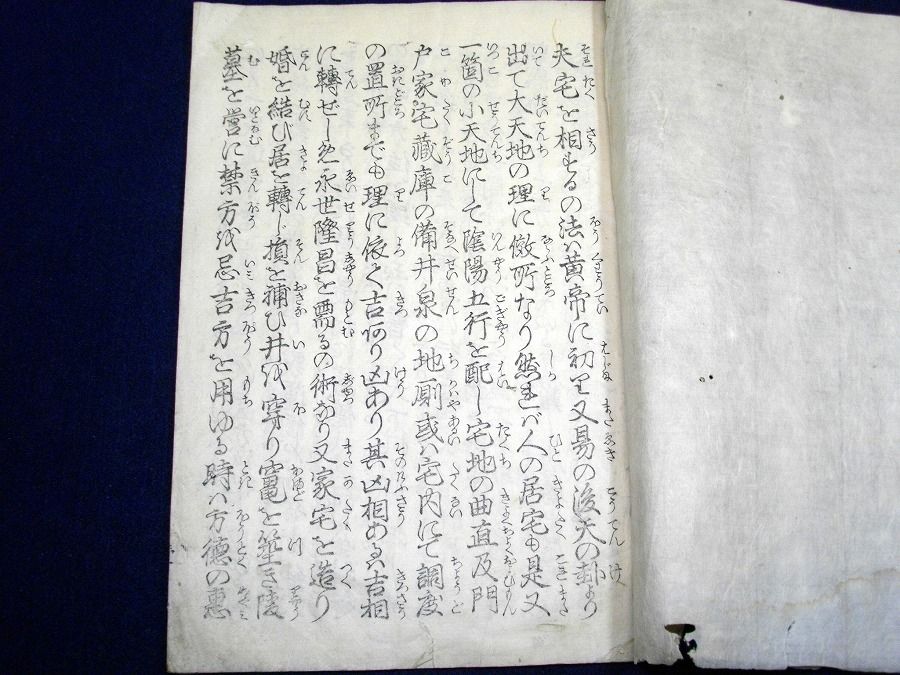 夫宅を相するの法ハ黄帝に初り又易の後天の卦より
出て大天地の理に倣所なり然れバ人の居宅も是又
一箇の小天地にして陰陽五行を配し宅地の曲直及門
戸家宅蔵庫の備井泉の地厠或ハ宅内にて調度
の置所までも理に依て吉あり凶あり其凶相あるハ吉相
に轉ぜしめ永世隆昌を需るの術なり又家宅を造り
婚を結び居を轉じ損を補ひ井を穿り竈を築き陵
墓を営に禁方を忌吉方を用ゆる時ハ方徳の恵